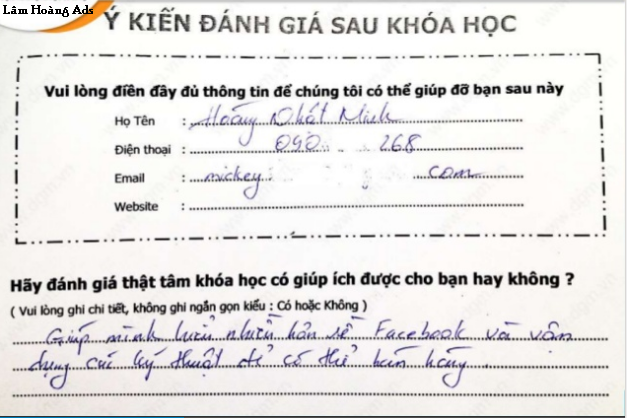 Lâm Hoàng Ads
Ý KIẾN ĐÁNH GIÁ SAU KHÓA HỌC
Vui lòng điền đầy đủ thông tin để chúng tôi có thể giúp đỡ bạn sau này
Họ Tên : Hoàng Nhất Minh
Điện thoại : 090 268
Email : mickey com
Website :
Hãy đánh giá thật tâm khóa học có giúp ích được cho bạn hay không ?
( Vui lòng ghi chi tiết, không ghi ngắn gọn kiểu : Có hoặc Không )
Giúp mình nhiều hơn về Facebook và vận
dụng các kỹ thuật để có thể bán hàng.